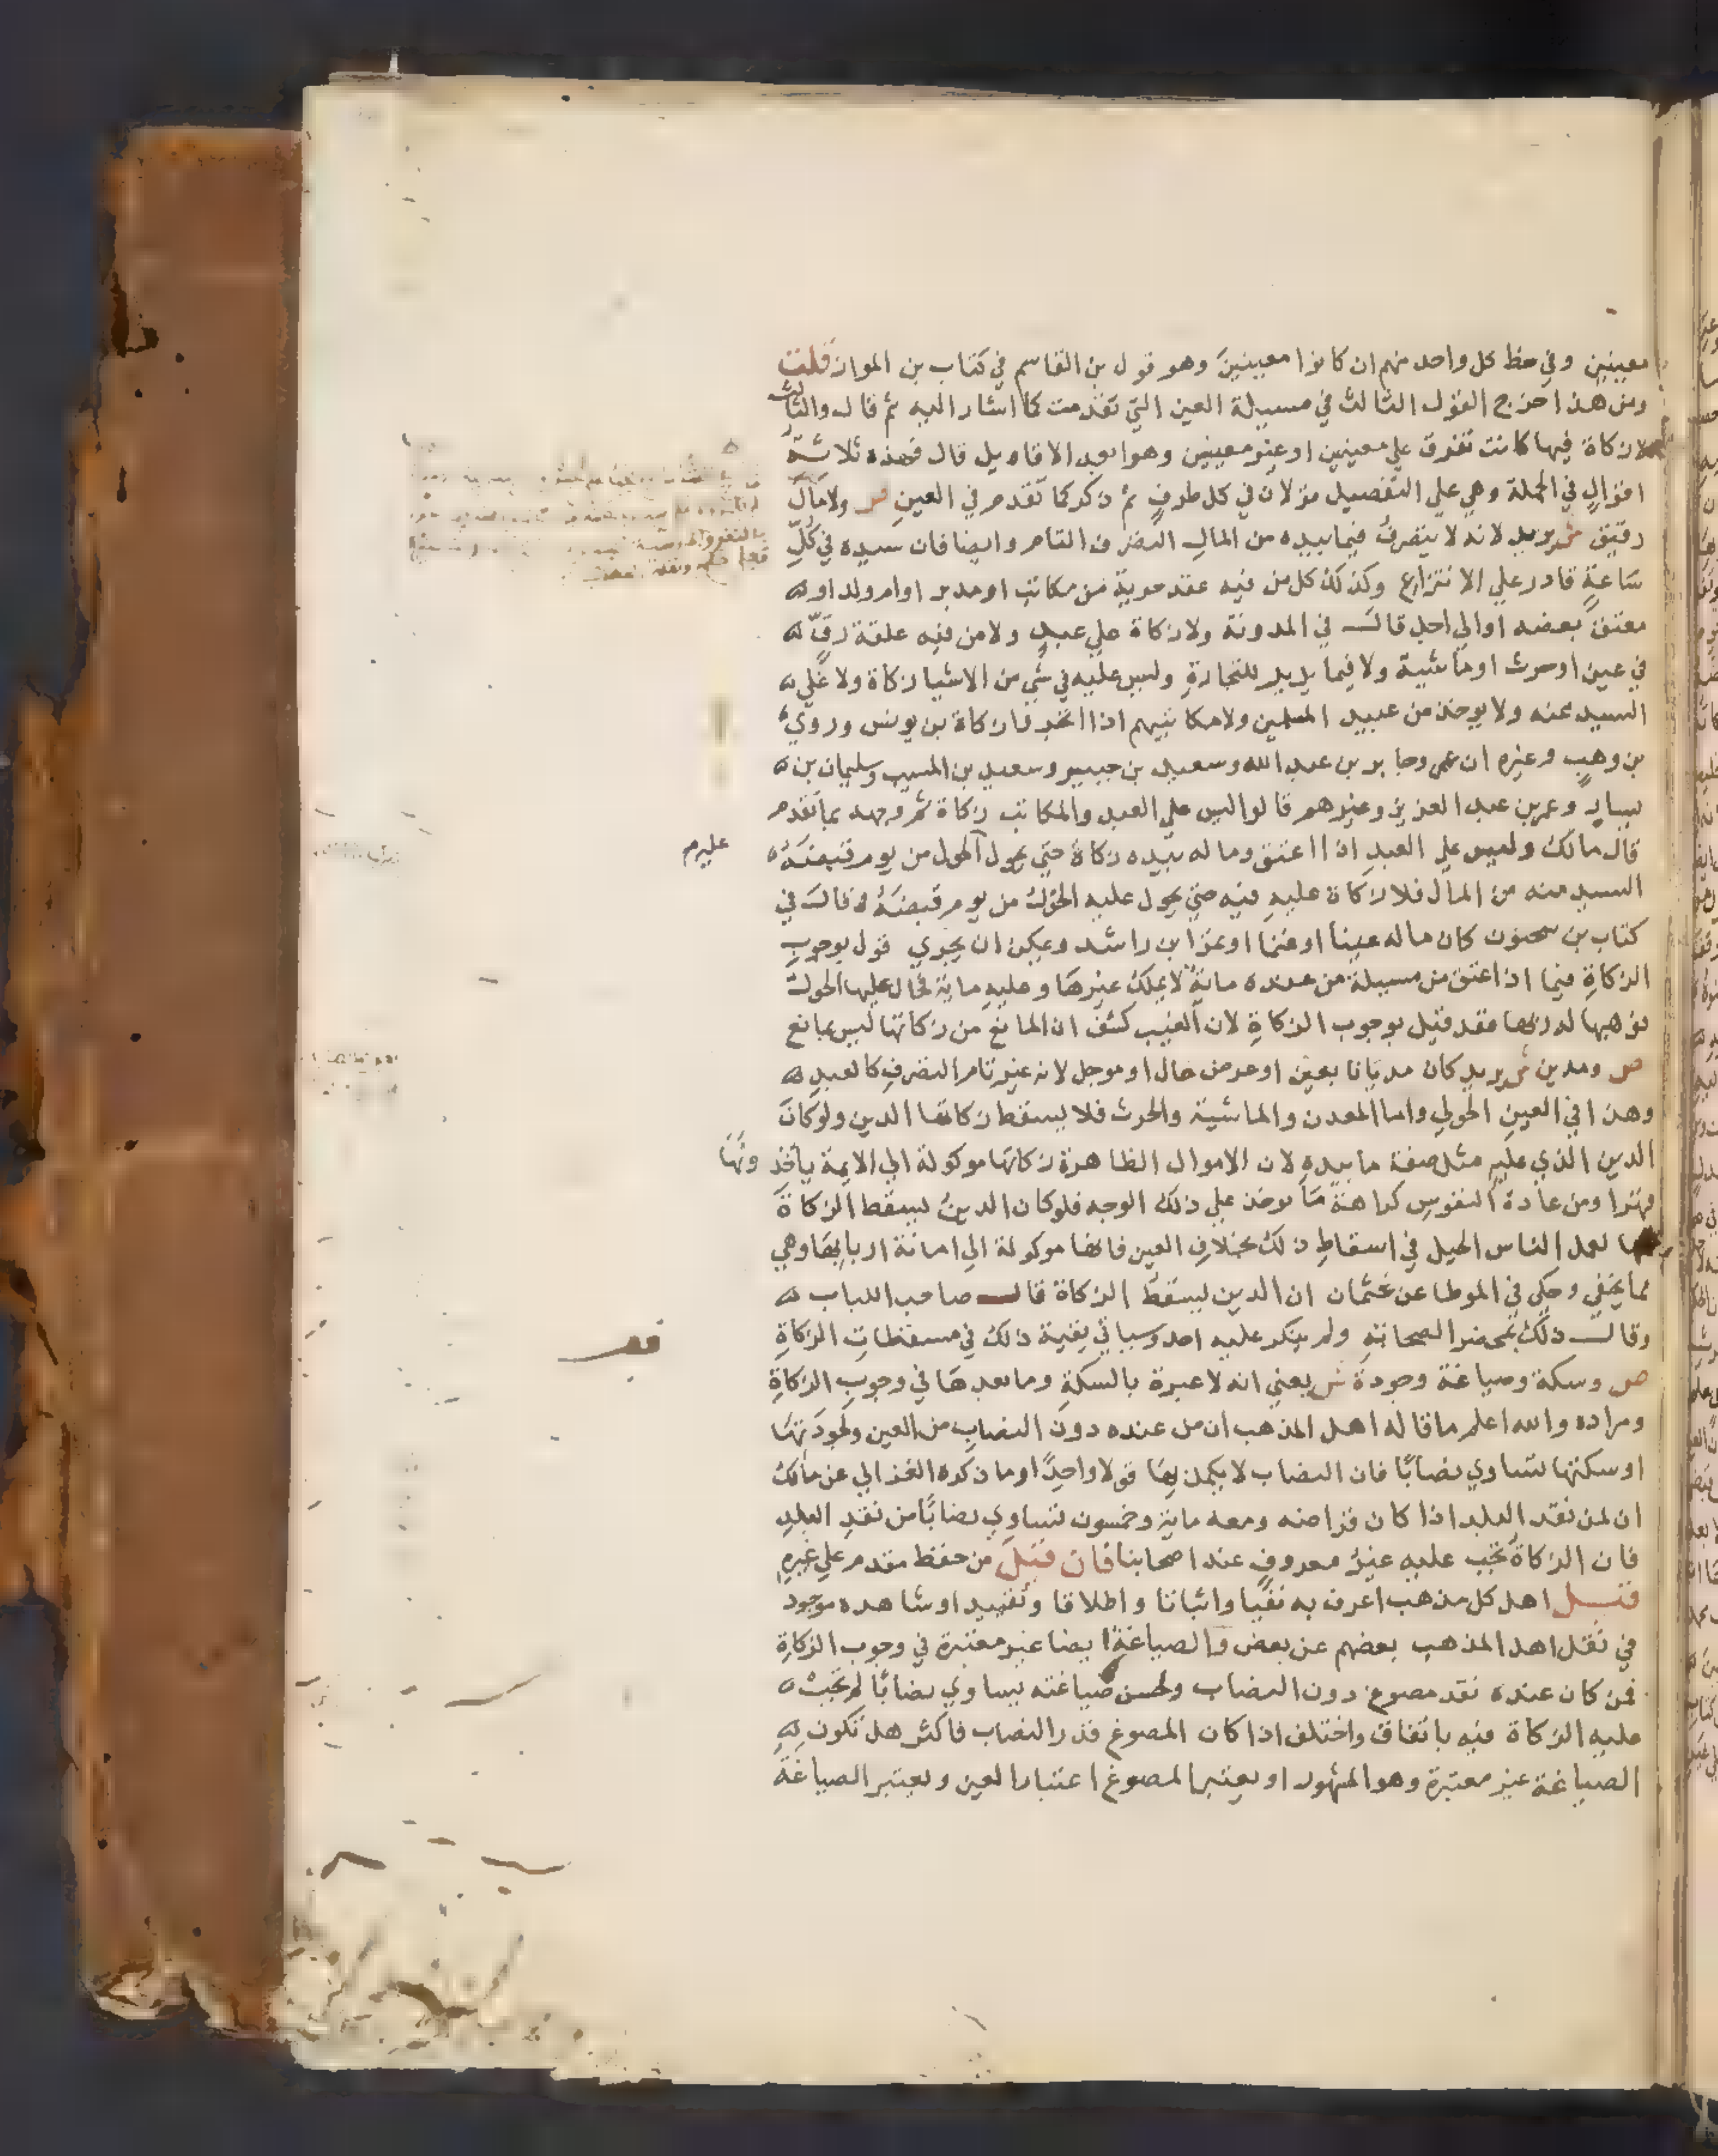 معينين وفي حظ كل واحد منهم ان كانوا معينين وهو قول بن القاسم في كتاب بن المواز قلت
ومن هذا اخرج القول الثالث في مسيلة العين التي تقدمت كما اشار اليه ثم قال والثالث
لا زكاة فيها كانت تفرق علي معينين او غير معينين وهو ابعد الاقاويل قال فهذه ثلاثة
اقوال في الجملة وهي علي التفصيل قولان في كل طرف ثم ذكر كما تقدم في العين ص ولا مال
رقيق ش يريد لانه لا يتصرف فيما بيده من المال التصرف التام وايضا فان سيده في كل
ساعة قادر علي الانتزاع وكذلك كل من فيه عقد حرية من مكاتب او مدبر او ام ولد او
معتق بعضه او الي اجل قال في المدونة ولا زكاة علي عبد ولا من فيه علقة رق
في عين او حرث او ماشية ولا فيما يدير للتجارة وليس عليه في شي من الاشيا زكاة ولا علي
السيد عنه ولا يوخذ من عبيد المسلمين ولا مكاتبيهم اذا اتجروا زكاة بن يونس وروي
بن وهب وغيره ان عمر وجابر بن عبد الله وسعيد بن جبير وسعيد بن المسيب وسليمان بن
يسار وعمر بن عبد العزيز وغيرهم قالوا ليس علي العبد والمكاتب زكاة ثم وجهه بما تقدم
قال مالك وليس علي العبد اذا اعتق وماله بيده زكاة حتي يحول الحول من يوم قبضه
السيد منه من المال فلا زكاة عليه فيه حتي يحول عليه الحول من يوم قبضه وقال في
كتاب بن سحنون كان ماله عينا او غنما او غيرا بن راشد ويمكن ان يجري قول بوجوب
الزكاة فيما اذا عتق من مسيلة من عنده ماية لا يملك غيرها وعليه ماية فحال عليها الحول
فوهبها له ربها فقد قيل بوجوب الزكاة لان الغيب كشف ان المانع من زكاتها ليس بمانع
ص ومدين ش يريد كان مديانا بعين او عرض حال او موجل لانه غير تام التصرف كالعبد
وهذا في العين الحولي واما المعدن والماشية والحرث فلا يسقط زكاتها الدين ولو كان
الدين الذي عليه مثل صفة ما بيده لان الاموال الظاهرة زكاتها موكولة الي الايمة ياخذونها
قهرا ومن عادة النفوس كراهة ما يوخذ علي ذلك الوجه فلو كان الدين يسقط الزكاة
لعمل الناس الحيل في اسقاط ذلك بخلاف العين فانها موكولة الي امانة اربابها وهي
مما يخفي وحكي في الموطا عن عثمان ان الدين يسقط الزكاة قال صاحب اللباب
وقال ذلك بمحضر الصحابة ولم ينكر عليه احد وسياتي بقية ذلك في مسقطات الزكاة
ص وسكة وصياغة وجودة ش يعني انه لا عبرة بالسكة وما بعدها في وجوب الزكاة
ومراده والله اعلم ما قاله اهل المذهب ان من عنده دون النصاب من العين ولجودتها
او سكتها تساوي نصابا فان النصاب لا يكمل بها قولا واحدا وما ذكره الغزالي عن مالك
ان لمن نقد البلد اذا كان قراضه ومعه ماية وخمسون تساوي نصابا من نقد البلد
فان الزكاة تجب عليه غير معروف عند اصحابنا فان قيل من حفظ مقدم علي غيره
قيل اهل كل مذهب اعرف به نفيا واثباتا واطلاقا وتقييدا وشاهده موجود
في نقل اهل المذهب بعضهم عن بعض والصياغة ايضا غير معتبرة في وجوب الزكاة
فمن كان عنده نقد مصوغ دون النصاب ولحسن صياغته يساوي نصابا لم تجب
عليه الزكاة فيه باتفاق واختلف اذا كان المصوغ قدر النصاب فاكثر هل تكون
الصياغة غير معتبرة وهو المشهور او يعتبر المصوغ اعتبار العين ويعتبر الصياغة